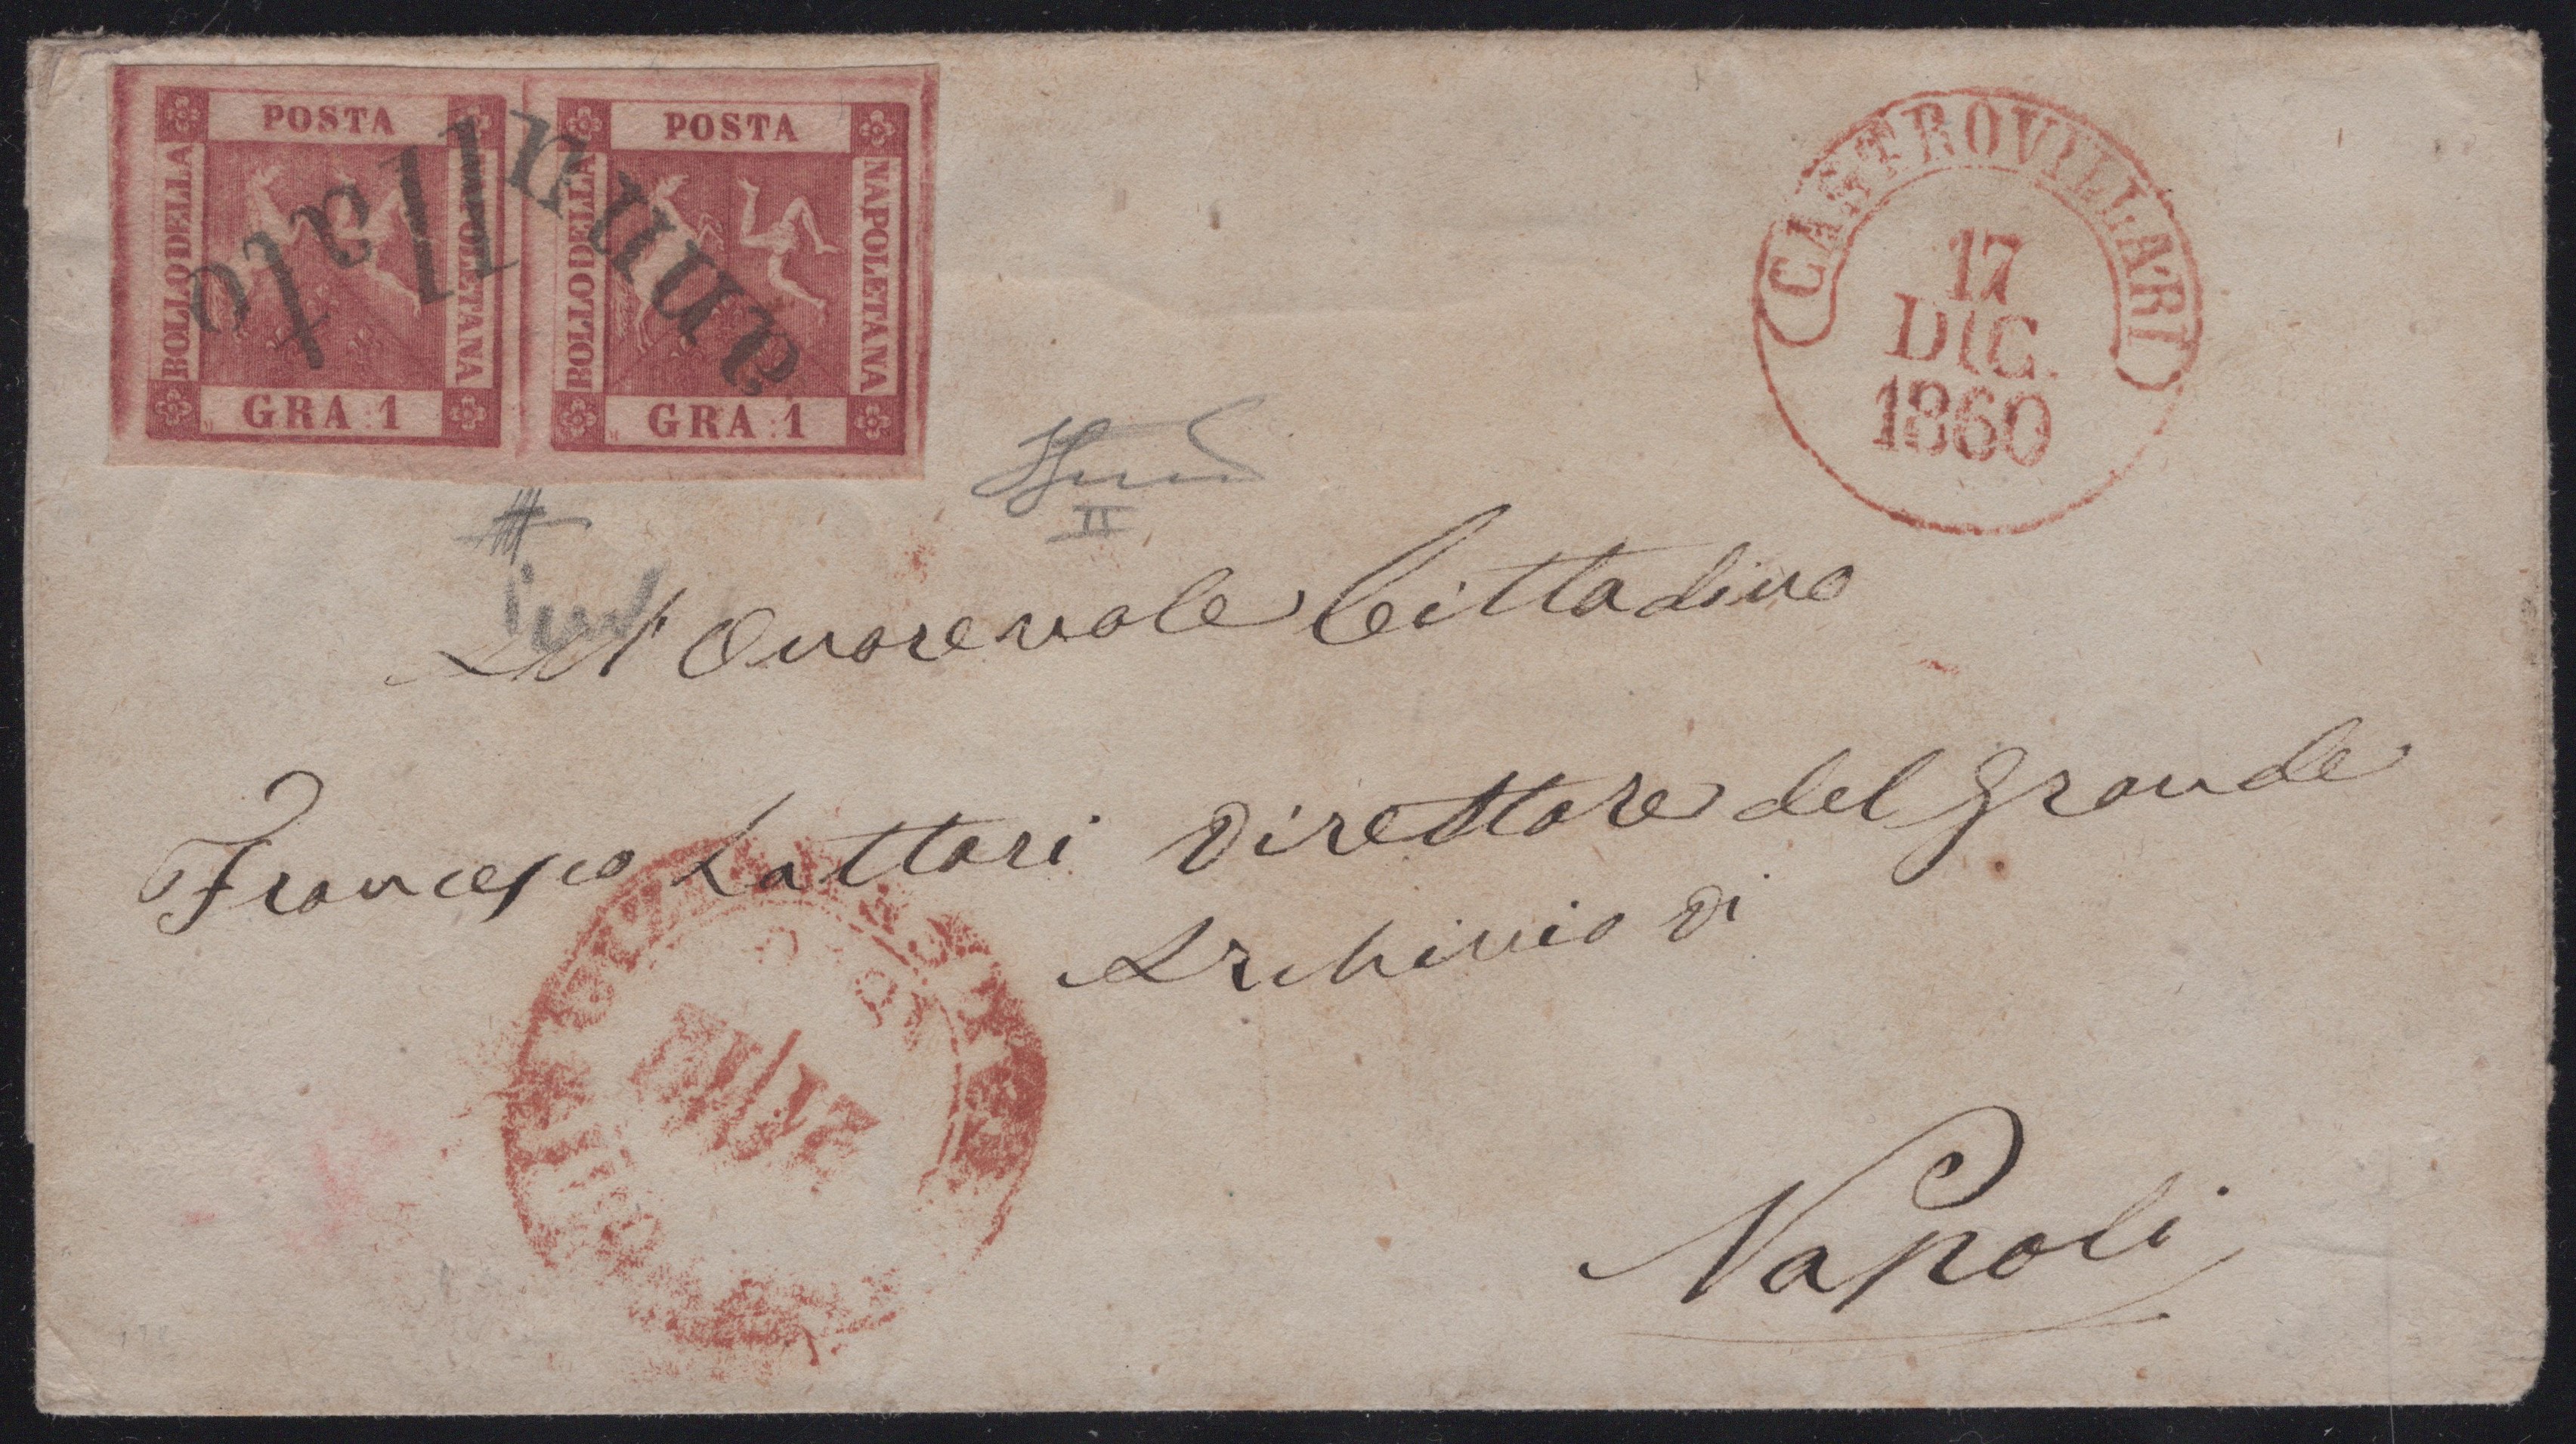 POSTA
BOLLO DELLA
NAPOLETANA
GRA 1
POSTA
BOLLO DELLA
NAPOLETANA
GRA 1
annullato
CASTROVILLARI
17
DIC.
1860
II
All' Onorevole Cittadino
Francesco Lattari Direttore del Grande
Archivio di
Napoli